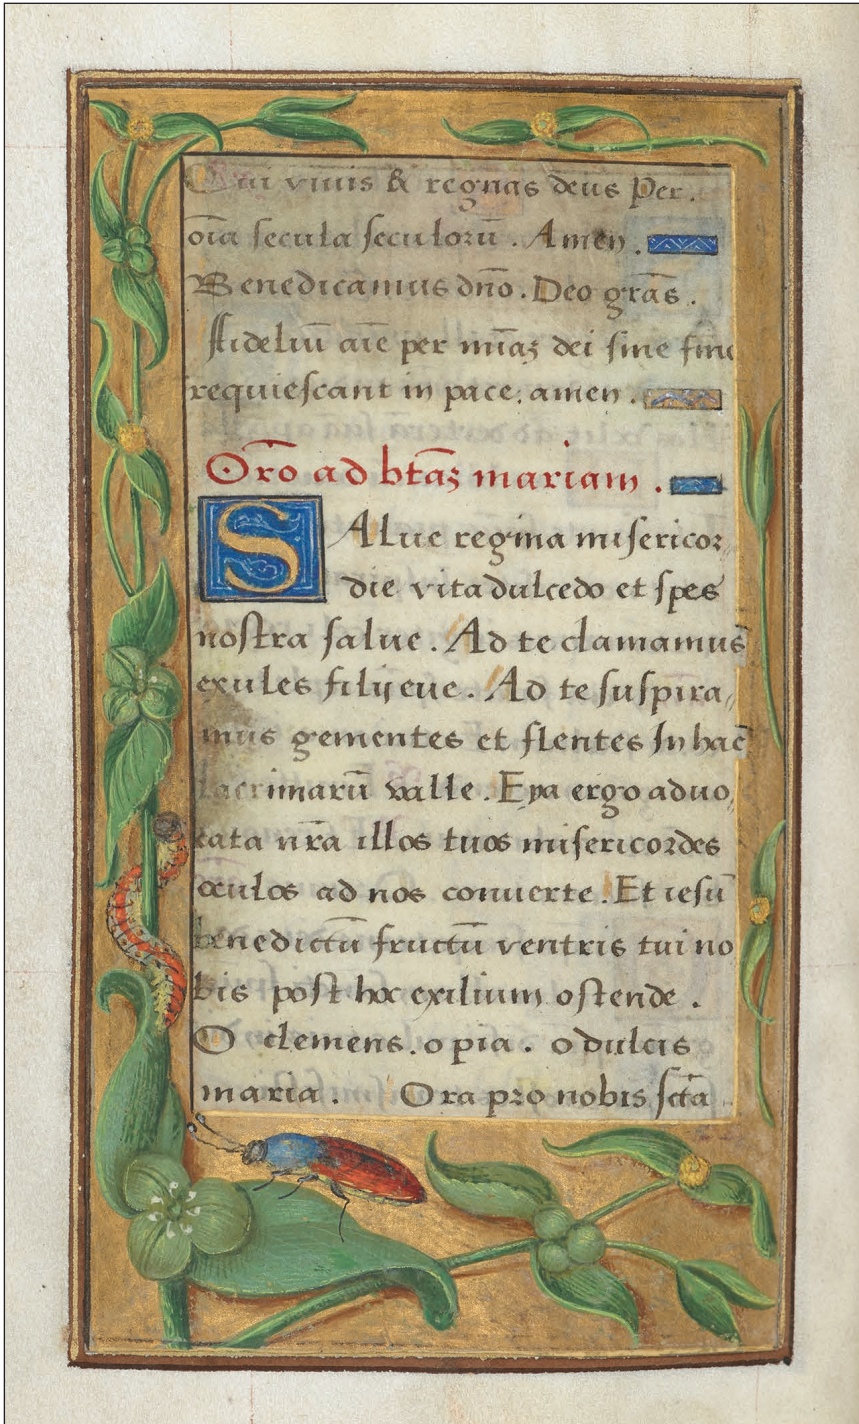 Qui viuis & regnas deus Per.
oīa secula seculorū. Amen.
Benedicamus dño. Deo grās.
Fideliū aīe per mīaʒ dei sine fine
requiescant in pace, amen.
Orō ad btāʒ mariam.
SAlue regina misericor⸗
die vita dulcedo et spes
nostra salue. Ad te clamamus
exules filij eue. Ad te suspira⸗
mus gementes et flentes In hac
lacrimarū valle. Eya ergo aduo⸗
cata nr̄a illos tuos misericordes
oculos ad nos conuerte. Et iesū
benedictū fructū ventris tui no
bis post hoc exilium ostende.
O clemens. o pia. o dulcis
maria. Ora pro nobis sctā